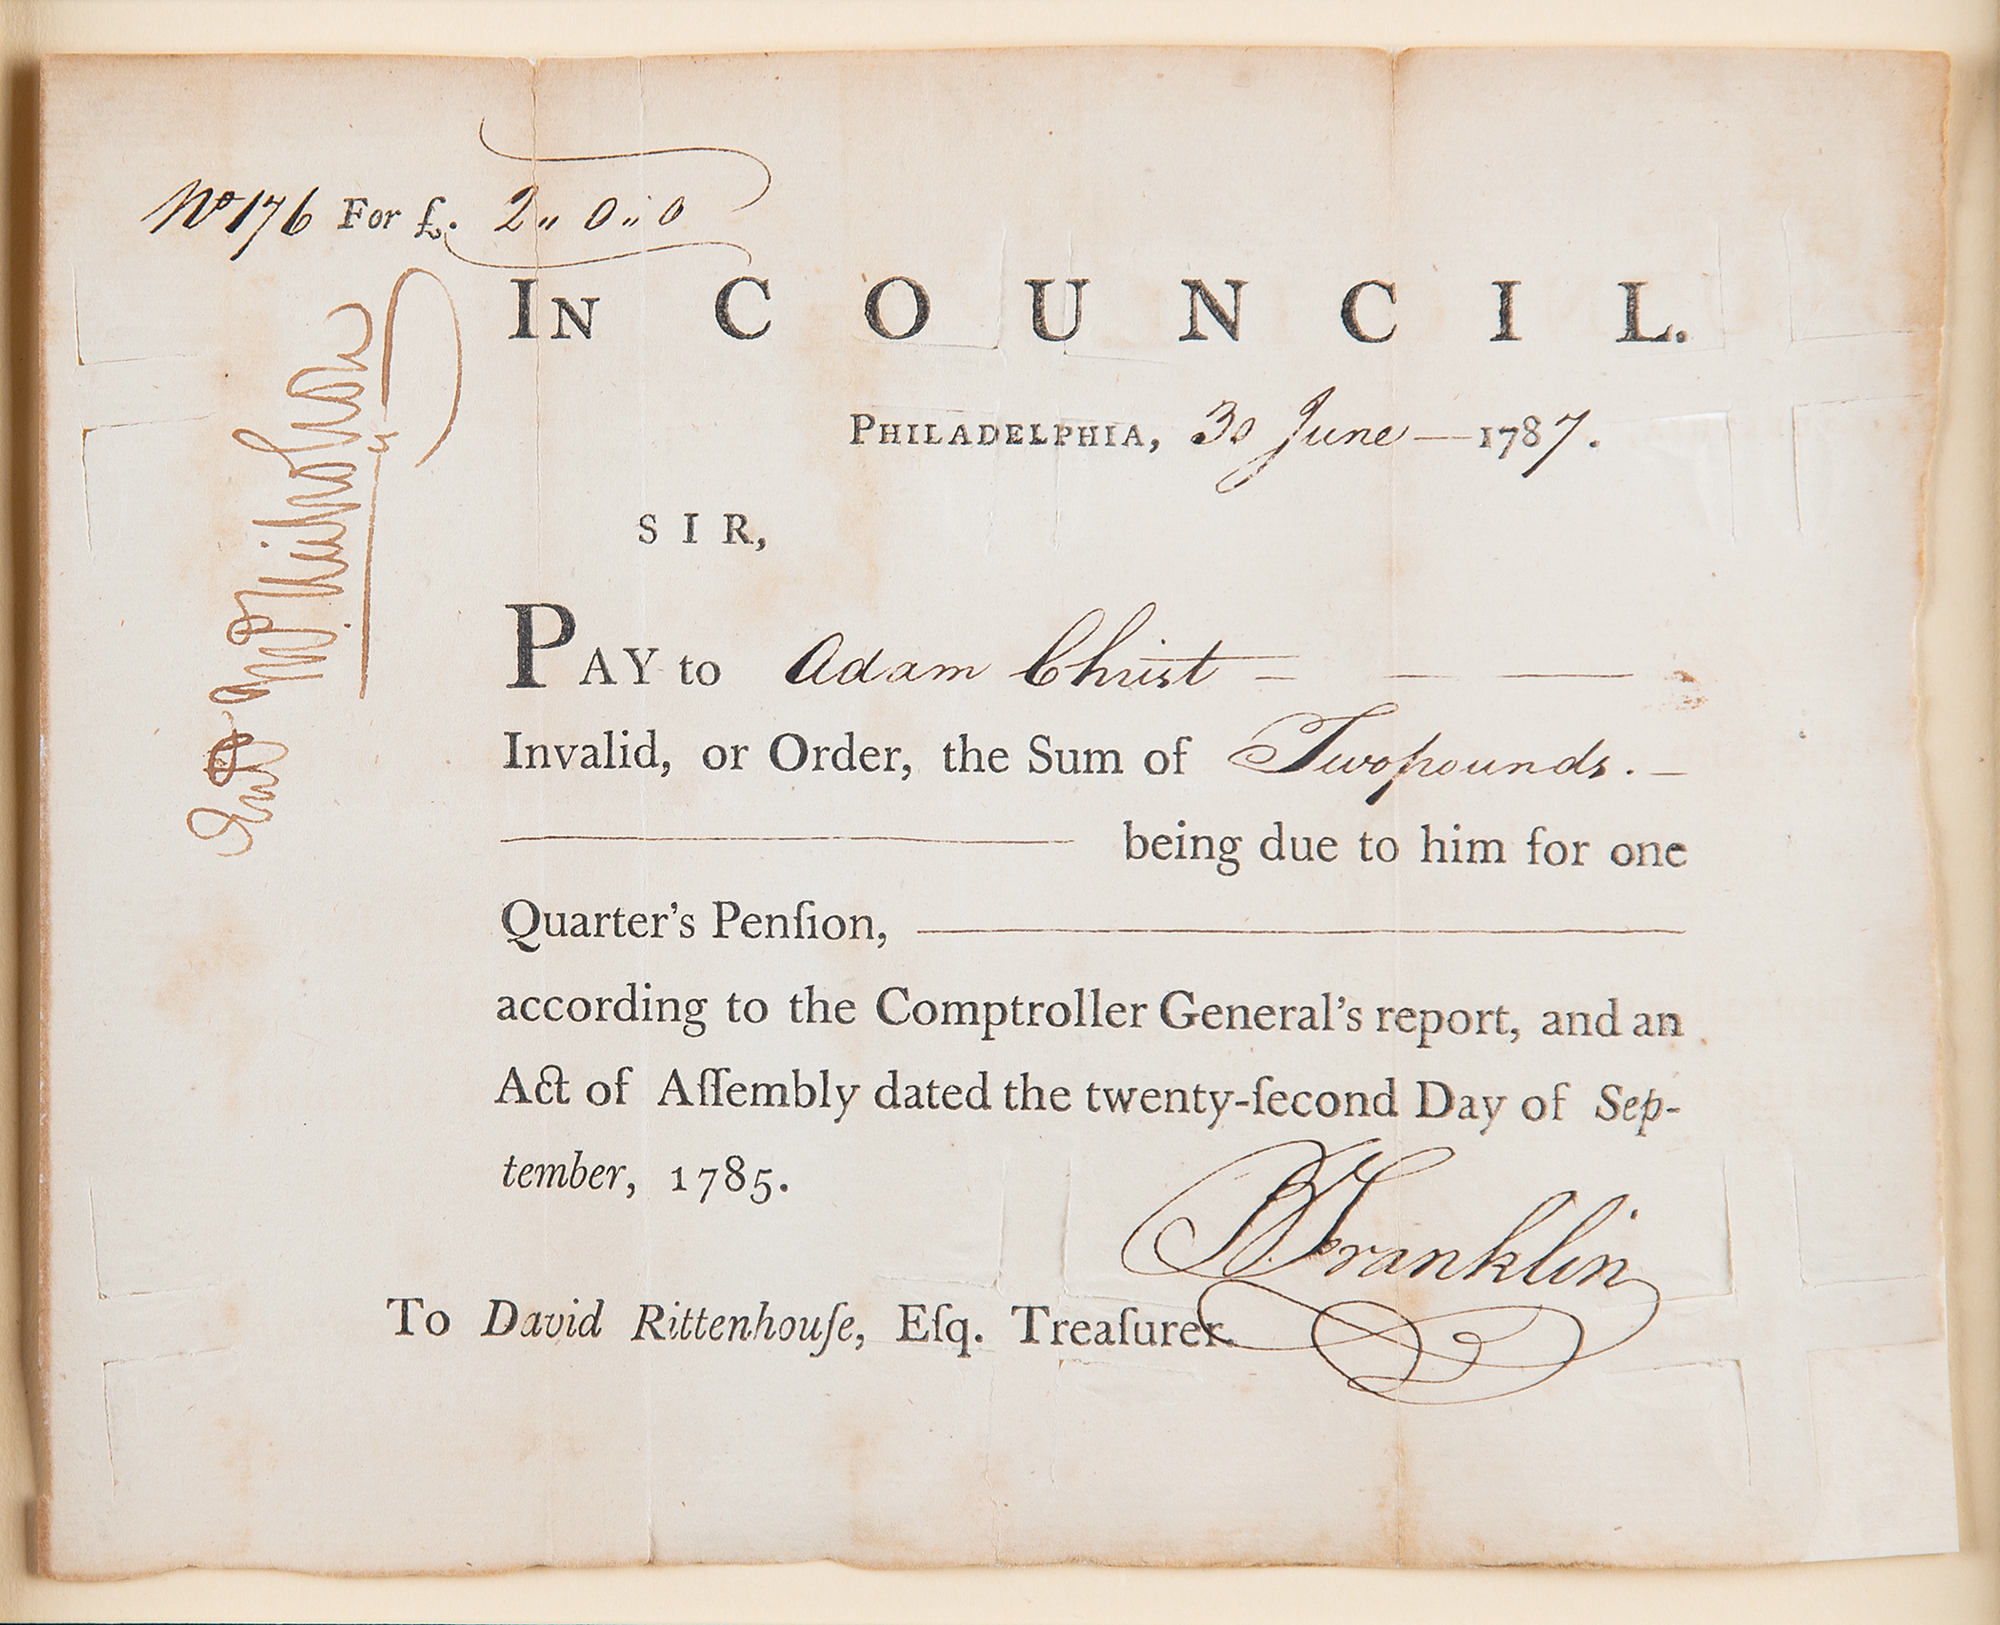 No 176 For £. 2,, 0,, 0
IN COUNCIL.
PHILADELPHIA, 30 June — 1787.
SIR,
PAY to Adam Christ — — —
Invalid, or Order, the Sum of Two pounds. —
being due to him for one
Quarter's Penſion,
according to the Comptroller General's report, and an
Act of Aſſembly dated the twenty-ſecond Day of Sep-
tember, 1785.
B Franklin
To David Rittenhouſe, Eſq. Treaſurer.